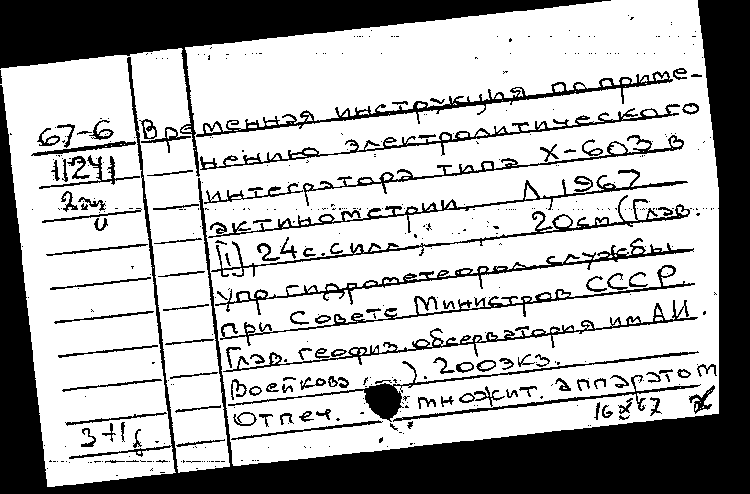 67-6 Временная инструкция по приме-
11241 нению электролитического
интегратора типа Х-603 в
актинометрии. Л, 1967
[1], 24 с. с илл. 20 см (Глав.
упр. гидрометеорол. службы
при Совете Министров СССР.
Глав. геофиз. обсерватория им А.И.
Воейкова). 200 экз.
Отпеч. множит. аппаратом
16 X 67